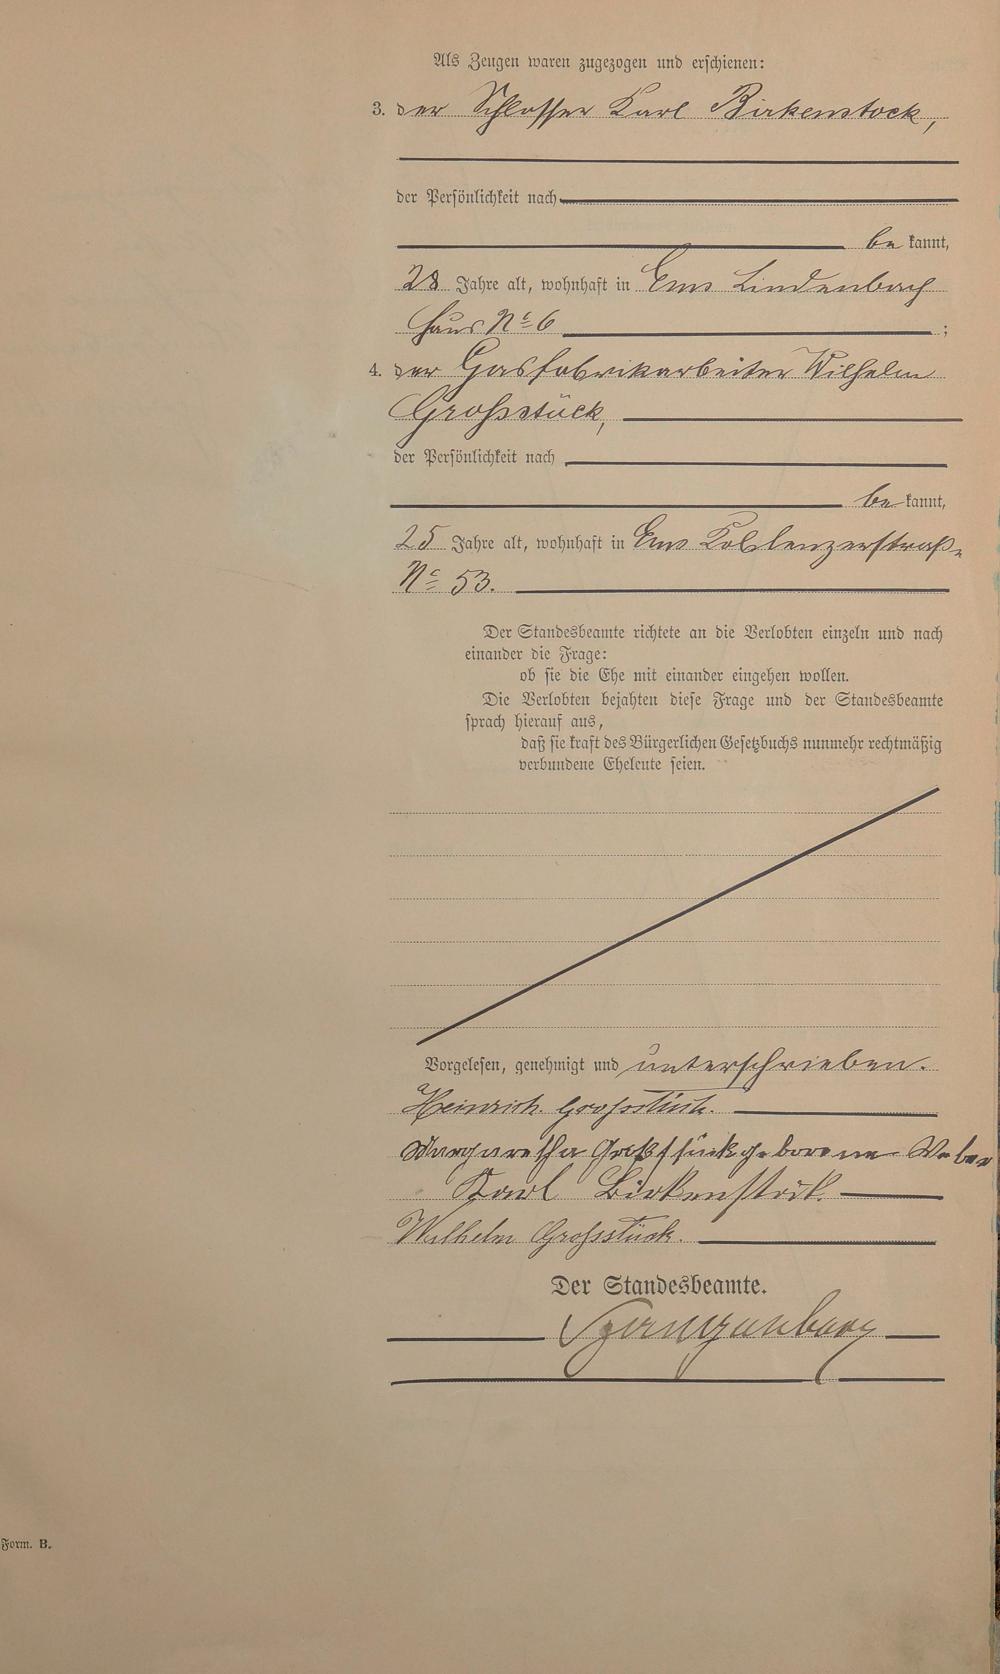 Als Zeugen waren zugezogen und erschienen:
3. der Schlosser Karl Birkenstock,
der Persönlichkeit nach
be kannt,
28 Jahre alt, wohnhaft in Ems Lindenbach
Haus No 6 ;
4. der Gasfabrikarbeiter Wilhelm
Grosstück,
der Persönlichkeit nach
be kannt,
25 Jahre alt, wohnhaft in Ems Coblenzerstraße
No 53.
Der Standesbeamte richtete an die Verlobten einzeln und nach
einander die Frage:
ob sie die Ehe mit einander eingehen wollen.
Die Verlobten bejahten diese Frage und der Standesbeamte
sprach hierauf aus,
daß sie kraft des Bürgerlichen Gesetzbuchs nunmehr rechtmäßig
verbundene Eheleute seien.
Vorgelesen, genehmigt und unterschrieben.
Heinrich Grosstück.
Margaretha Großstück geborene Weber
Karl Birkenstock.
Wilhelm Grossstück.
Der Standesbeamte.
Form. B.